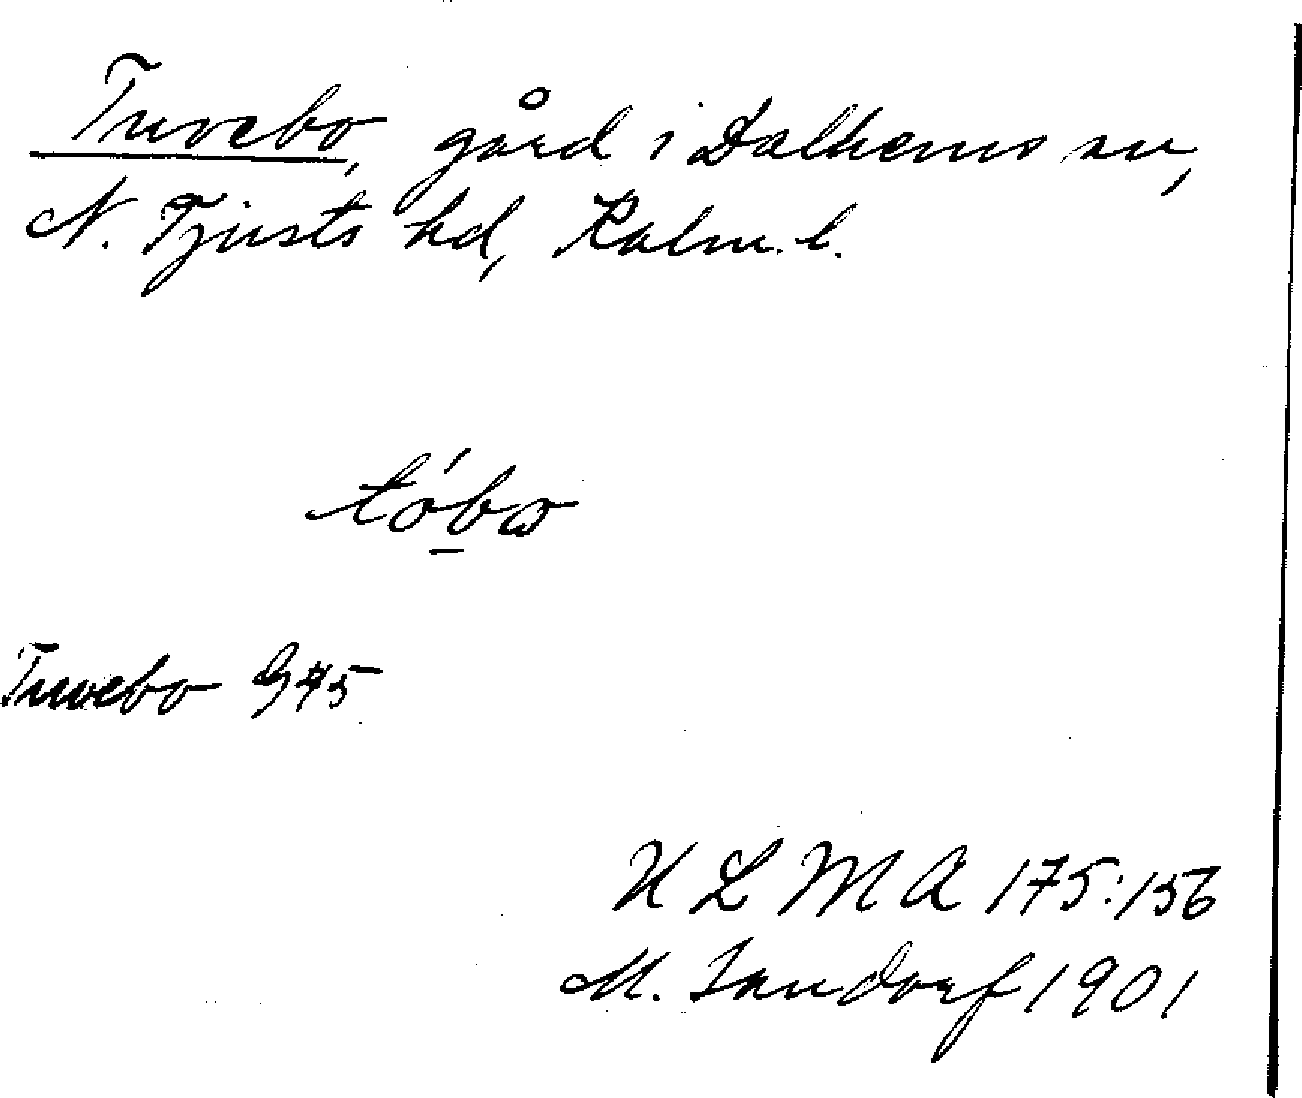 Tuvebo, gård i Dalhems sn,
N. Tjusts hd, Kalm. l.
tóbω
Tuvebo G45
ULMA 175:156
M. Sandorf 1901